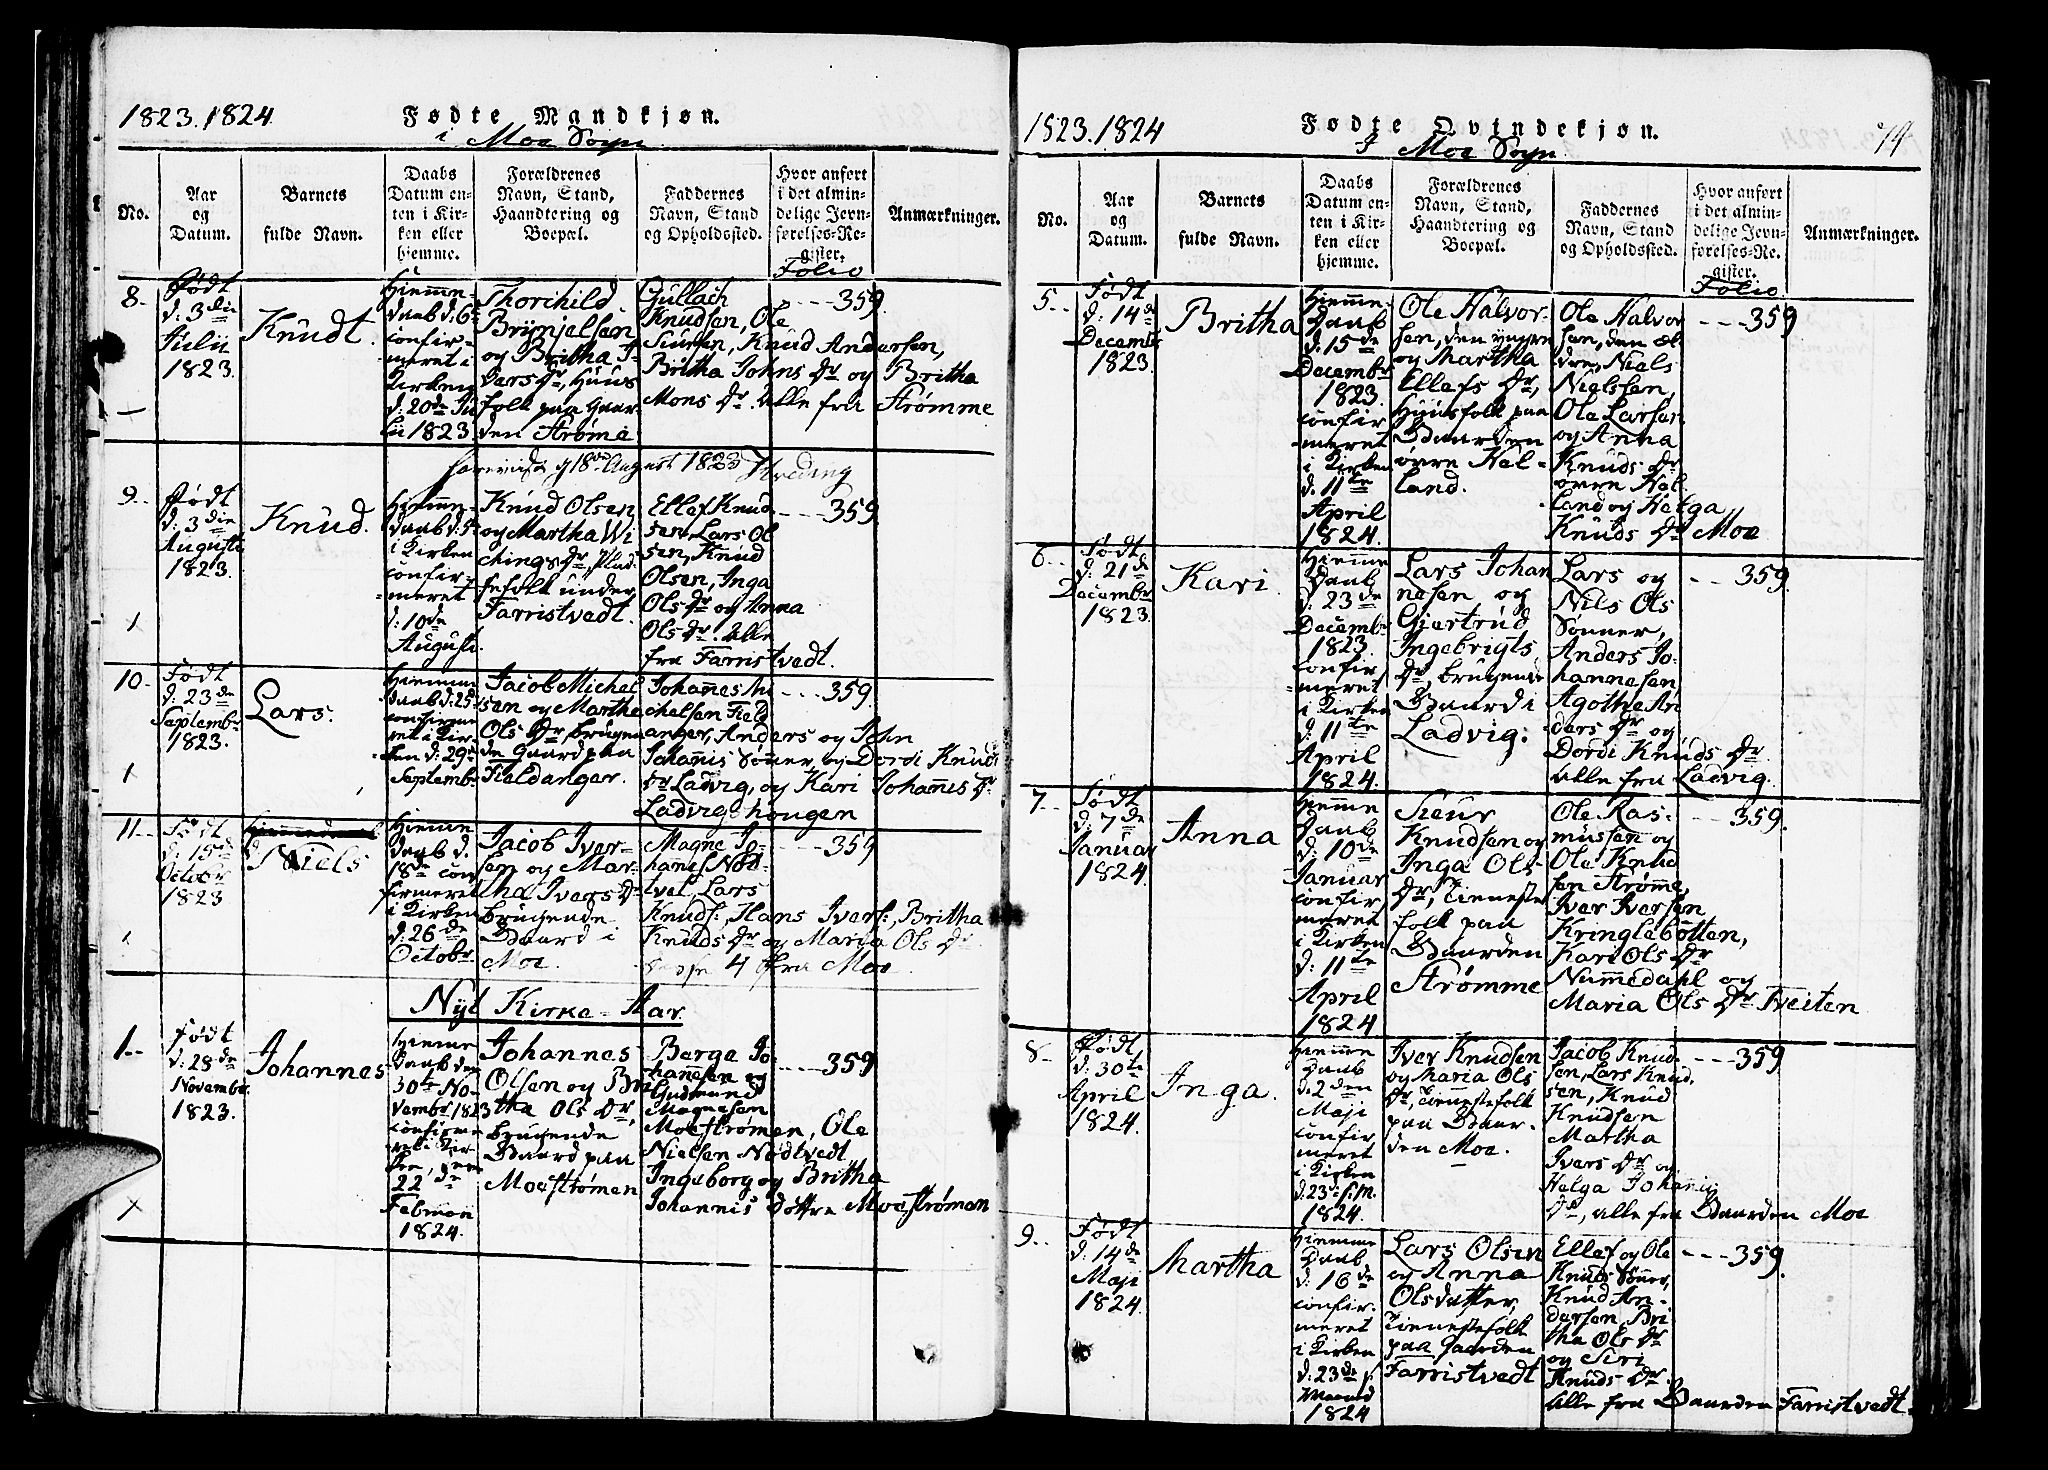 1823. 1824
Fødte Mandkjøn.
i Moe Sogn
No.
Aar
og
Datum.
Barnets
fulde Navn.
Daabs
Datum en-
ten i Kir-
ken eller
hjemme.
Forældrenes
Navn, Stand,
Haandtering og
Boepæl.
Faddernes
Navn, Stand
og Opholdssted.
Hvor anført
i det almin-
delige Jevn-
førelses-Re-
gister.
Folio
Anmærkninger.
8-
Født
d: 3die
Julii
1823.
Knudt.
Hiemme-
daab d. 6te
confir-
meret i
Kirken
d: 20de Ju
lii 1823
Thorchild
Brynjelsen
og Britha I-
vers Dr, Huus
folk paa Gaar
den Strøme
Gullach
Knudsen, Ole
Siursen, Knud Andersen,
Britha Johns Dr og Britha
Mons Dr. Alle fra Strømme
----359.
18de August 1823
9--
Født
d: 3die
Augusti
1823.
Knud.
Hiemme-
daab d. 5te
i Kirken
confir-
meret
d: 10de
Augusti.
Knud Olsen
og Martha Wi
chings Dr, Plad-
sefolk under
Farristvedt.
Ellef Knud
sen, Lars Ol
sen, Knud
Olsen, Inga
Ols Dr og Anna
Ols Dr. Alle
fra Farristvedt.
----359
10-
Født
d: 23de
Septembr
1823.
Lars.
Hiemme
daab d: 25
confirme
ret i Kir-
ken d: 29de
Septembr
Jacob Michel
sen og Martha
Ols Dr, brugen
de Gaard paa
Fieldanger.
Johannes Mi
chelsen Field
anger, Anders og John
Johannis Sønner, og Dordi Knuds
Dr Ladvig, og Kari Johannis Dr
Ladvigshougen
----359.
11--
Født
d: 15de
Octobr
1823
Niels
Hiemme
daab d.
18de con
firmeret
i Kirken
d: 26de
Octobr
Jacob Iver-
sen og Mar-
tha Ivers Dr
brugende
Gaard i
Moe.
Magne Jo-
hannes Nød-
vet, Lars
Knuds: Hans Ivers: Britha
Knuds Dr og Maria Ols Dr
disse 4 fra Moe
---359
Nyt Kirke-Aar
1--
Født
d: 28de
Novembr
1823.
Johannes
Hiemme
Daab den
30te No-
vembr 1823
confirme
ret i Kir
ken, den
22de
Februari
1824.
Johannes
Olsen og Bri
tha Ols Dr,
brugende
Gaard paa
Moestrømen
Berge Jo-
hannesen og
Gudmund
Magnesen
Moestrømen, Ole
Nielsen Nødtvedt
Ingeborg og Britha
Johannis Døttre Moestrømen
----359
1823. 1824
Fødte Qvindekjøn.
I Moe Sogn
74
No.
Aar
og
Datum.
Barnets
fulde Navn.
Daabs
Datum en-
ten i Kir-
ken eller
hjemme.
Forældrenes
Navn, Stand,
Haandtering og
Boepæl.
Faddernes
Navn, Stand
og Opholdssted.
Hvor anført
i det almin-
delige Jevn-
førelses-Re-
gister.
Folio
Anmærkninger.
5--
Født
d: 14de
Decembr
1823.
Britha
Hiemme-
Daab
d: 15de
Decembr
1823.
confir
meret
i Kirken
d: 11te
April
1824.
Ole Halvor-
sen, den yngre
og Martha
Ellefs Dr,
Huusfolk paa
Gaarden
øvre Hel-
land.
Ole Halvor
sen, den æl
dre, Niels
Nielssen,
Ole Larsen
og Anna
Knuds Dr
øvre Hel-
land og Helga
Knuds Dr Moe
---359
6--
Født
d: 21de
Decembr
1823.
Kari
Hiemme
Daab
d: 23de
Decembr
1823.
confir
meret
i Kirken
d: 11te
April
1824.
Lars Johan
nesen og
Giertrud
Ingebrigts
Dr, brugende
Gaard i
Ladvig.
Lars og
Nils Ols
Sønner,
Anders Jo-
hannesen
Agothe An
ders Dr og
Dordi Knuds Dr
alle fra Ladvig.
---359.
7--
Født
d: 7de
Januar
1824.
Anna
Hiemme
Daab
d: 10de
Januar
confir
meret
i Kirken
d: 11te
April
1824
Sieur
Knudsen og
Inga Ols-
Dr, Tieneste
folk paa
Gaarden
Strømme
Ole Ras-
mussen og
Ole Knud
sen Strømme,
Iver Iversen
Kringlebotten,
Kari Ols Dr
Nummedahl og
Maria Ols Dr Tveiten
---359.
8-
Født
d: 30te
April
1824.
Inga.
Hiemme
Daab
d: 2den
Maji
confir
meret
i Kirken
d: 23de s: M.
1824.
Iver Knudsen
og Maria Ols
Dr, Tienestefolk
paa Gaar-
den Moe.
Jacob Knud-
sen, Lars Knud
sen, Knud
Knudsen
Martha
Ivers Dr og
Helga Johannis
Dr, alle fra Gaarden Moe
---359
9--
Født
d: 14de
Maji
1824.
Martha
Hiemme
Daab
d: 16de
confir-
meret
i Kirken
d: 23de s:
Maaned
1824
Lars Olsen
og Anna
Olsdatter,
Tienestefolk
paa Gaarden
Farristvedt
Ellef og Ole
Knuds Sønner,
Knud An-
dersen, Bri
tha Ols Dr
og Siri
Knuds Dr.
Alle fra Gaarden Farristvedt.
---359.